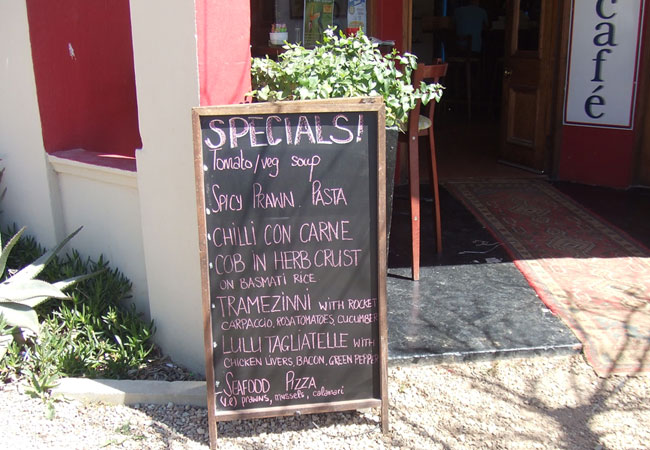 SPECIALS!
Tomato/veg soup
SPICY PRAWN. PASTA
CHILLI CON CARNE
COB IN HERB CRUST
ON BASMATI RICE
TRAMEZINNI WITH ROCKET
CARPACCIO, ROSATOMATOES, CUCUMBER
LULU TAGLIATELLE WITH
CHICKEN LIVERS, BACON, GREEN PEPPER
SEAFOOD PIZZA
prawns, mussels, calamari
café